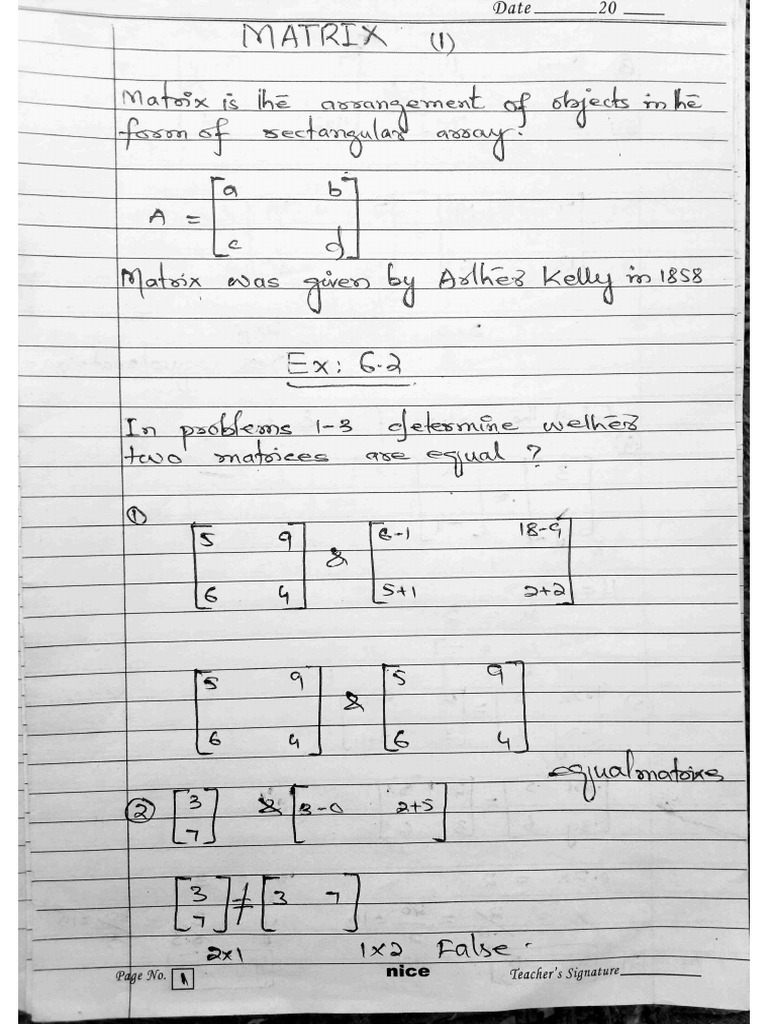 Date 20
MATRIX (1)
Matrix is the arrangement of objects in the
form of rectangular array.
A = [a b
c d]
Matrix was given by Arther Kelly in 1858
Ex: 6.2
In problems 1-3 determine wether
two matrices are equal ?
① [5 9 & [6-1 18-9
6 4] 5+1 2+2]
[5 9 & [5 9
6 4] 6 4]
equal matrixes
② [3 & [3-0 2+5]
7]
[3 ≠ [3 7]
7]
2×1 1×2 False.
Page No. 1 nice Teacher's Signature